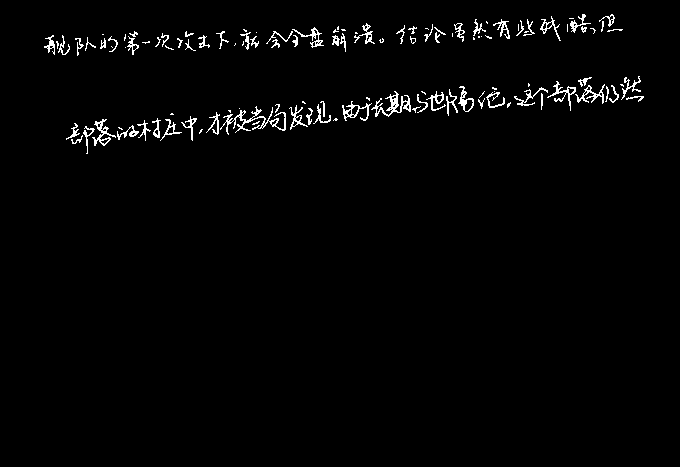 舰队的第一次攻击下,就会全盘崩溃。结论虽然有些残酷,但
部落的村庄中,才被当局发现.由于长期与世隔绝,这个部落仍然